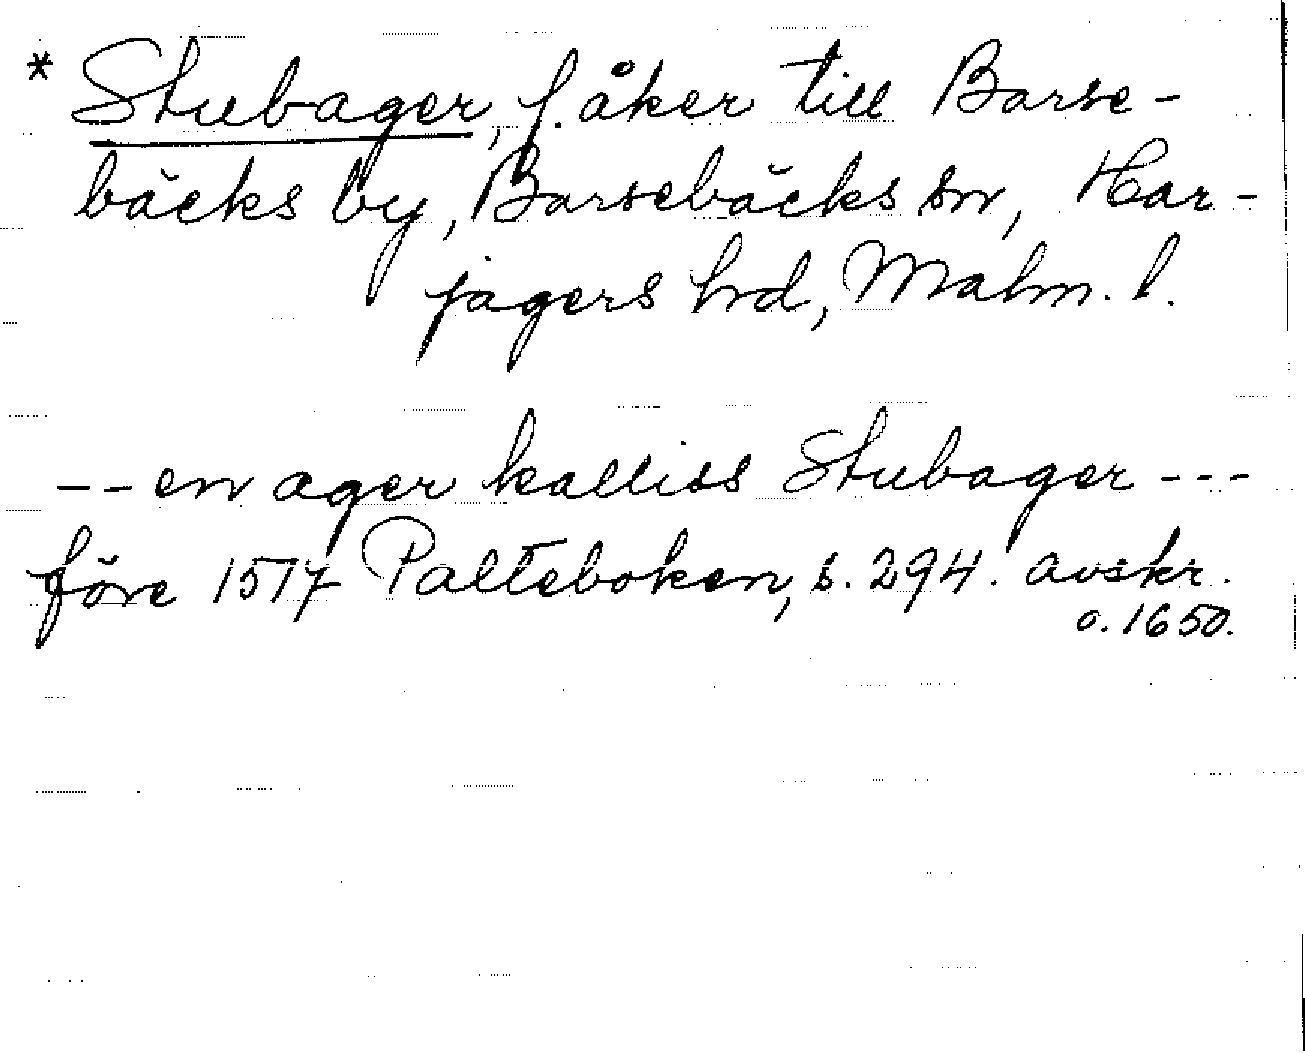 * Stubager, f. åker till Barse-
bäcks by, Barsebäcks sn, Har-
jagers hrd, Malm. l.
-- en ager kalliss Stubager ---
före 1517 Palteboken, s. 294. avskr.
o. 1650.